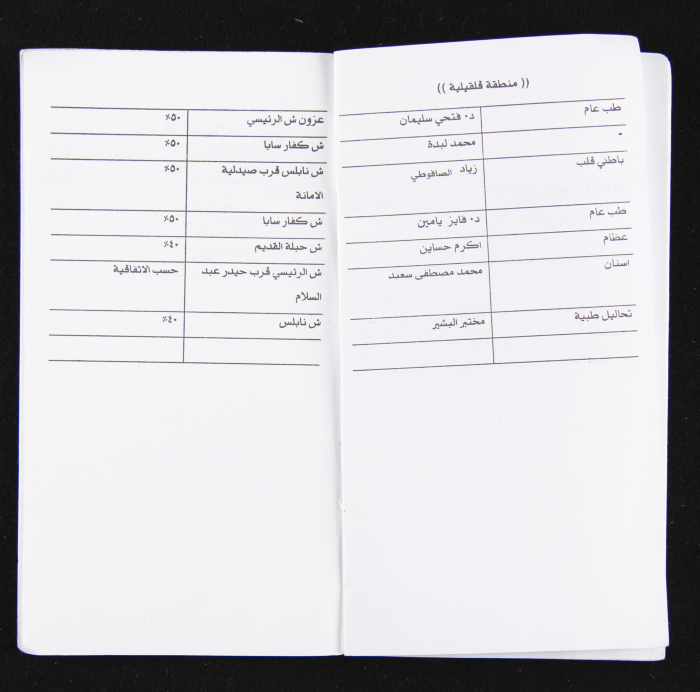 (( منطقة قلقيلية ))
طب عام د. فتحي سليمان
" محمد لبدة
باطني قلب زياد الصافوطي
طب عام د. فايز يامين
عظام اكرم حساين
اسنان محمد مصطفى سعيد
تحاليل طبية مختبر البشير
عزون ش الرئيسي ٥٠٪
ش كفار سابا ٥٠٪
ش نابلس قرب صيدلية ٥٠٪
الامانة
ش كفار سابا ٥٠٪
ش حبلة القديم ٤٠٪
ش الرئيسي قرب حيدر عبد حسب الاتفاقية
السلام
ش نابلس ٤٠٪